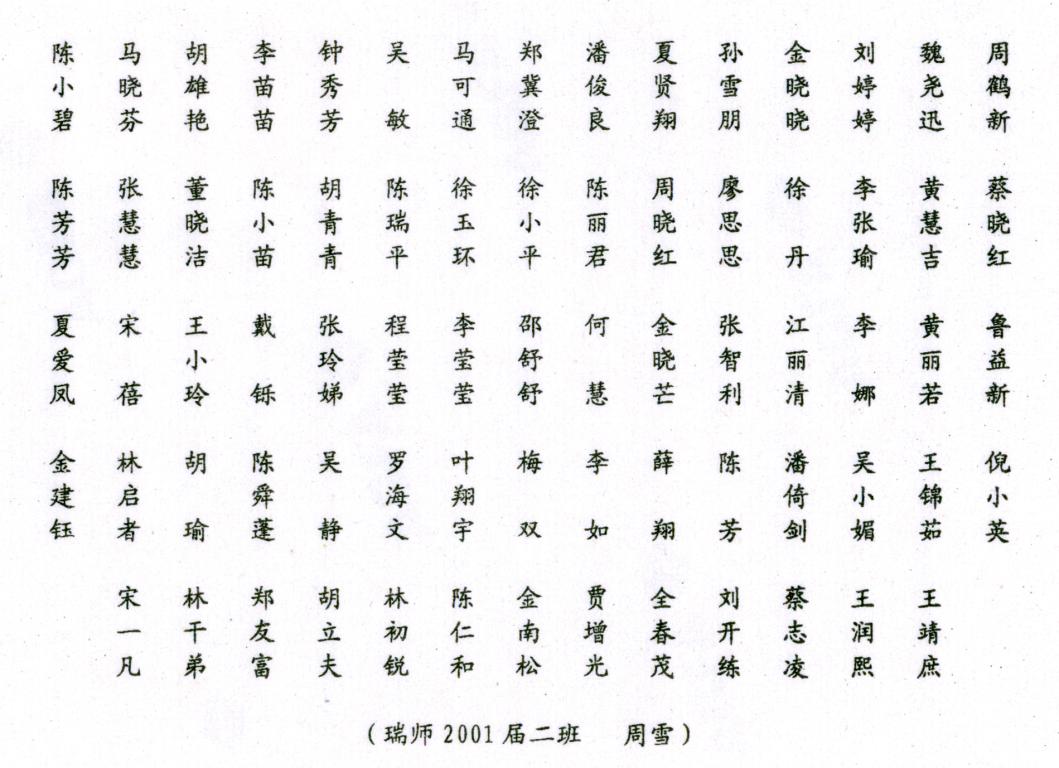 陈小碧 马晓芬 胡雄艳 李苗苗 钟秀芳 吴敏 马可通 郑冀澄 潘俊良 夏贤翔 孙雪朋 金晓晓 刘婷婷 魏尧迅 周鹤新
陈芳芳 张慧慧 董晓洁 陈小苗 胡青青 陈瑞平 徐玉环 徐小平 陈丽君 周晓红 廖思思 徐丹 李张瑜 黄慧吉 蔡晓红
夏爱凤 宋蓓 王小玲 戴铄 张玲娣 程莹莹 李莹莹 邵舒舒 何慧 金晓芒 张智利 江丽清 李娜 黄丽若 鲁益新
金建钰 林启者 胡瑜 陈舜蓬 吴静 罗海文 叶翔宇 梅双 李如 薛翔 陈芳 潘倚剑 吴小媚 王锦茹 倪小英
宋一凡 林干弟 郑友富 胡立夫 林初锐 陈仁和 金南松 贾增光 全春茂 刘开练 蔡志凌 王润熙 王靖庶
（瑞师 2001 届二班 周雪）